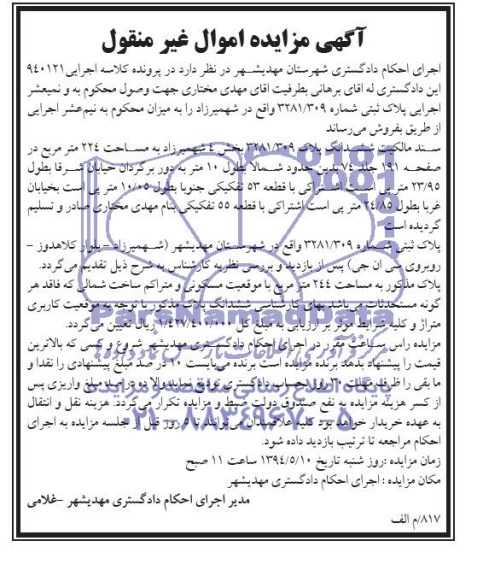 آگهی مزایده اموال غیر منقول
اجرای احکام دادگستری شهرستان مهدیشهر در نظر دارد در پرونده کلاسه اجرایی ۹۴۰۱۲۱
این دادگستری له اقای برهانی بطرفیت اقای مهدی مختاری جهت وصول محکوم به و نمیعشر
اجرایی پلاک ثبتی شماره ۳۲۸۱/۳۰۹ واقع در شهمیرزاد را به میزان محکوم به نیم‌عشر اجرایی
از طریق بفروش می‌رساند
سند مالکیت ششدانگ پلاک ۳۲۸۱/۳۰۹ بخش ۴ شهمیرزاد به مساحت ۲۲۴ متر مربع در
صفحه ۱۹۱ جلد ۷۴ بدین حدود شمالا بطول ۱۰ متر به دور برگردان خیابان شرقا بطول
۲۳/۹۵ متر پی است اشتراکی با قطعه ۵۳ تفکیکی جنوبا بطول ۱۰/۰۵ متر پی است بخیابان
غربا بطول ۲۴/۸۵ متر پی است اشتراکی با قطعه ۵۵ تفکیکی بنام مهدی مختاری صادر و تسلیم
گردیده است
پلاک ثبتی شماره ۳۲۸۱/۳۰۹ واقع در شهرستان مهدیشهر (شهمیرزاد – بلوار کلاهدوز –
روبروی سی ان جی) پس از بازدید و بررسی نظریه کارشناس به شرح ذیل تقدیم می‌گردد.
پلاک مذکور به مساحت ۲۴۴ متر مربع با موقعیت مسکونی و متراکم ساخت شمالی که فاقد هر
گونه مستحدثات می‌باشد بهای کارشناسی ششدانگ پلاک مذکور با توجه به موقعیت کاربری
متراژ و کلیه شرایط موثر بر ارزیابی به مبلغ کل ۱/۴۲۷/۴۰۰/۰۰۰ ریال تعیین می‌گردد.
مزایده راس ساعت مقرر در اجرای احکام دادگستری مهدیشهر شروع و کسی که بالاترین
قیمت را پیشنهاد بدهد برنده مزایده است برنده می‌بایست ۱۰ در صد مبلغ پیشنهادی را نقدا و
ما بقی را ظرف مهلت روز بحساب دادگستری تودیع نماید والا ده در صد مبلغ واریزی پس
از کسر هزینه مزایده به نفع صندوق دولت ضبط و مزایده تکرار می‌گردد. هزینه نقل و انتقال
به عهده خریدار خواهد بود کلیه علاقمندان می توانند تا ۵ روز قبل از جلسه مزایده به اجرای
احکام مراجعه تا ترتیب بازدید داده شود.
زمان مزایده :روز شنبه تاریخ ۱۳۹۴/۵/۱۰ ساعت ۱۱ صبح
مکان مزایده : اجرای احکام دادگستری مهدیشهر
مدیر اجرای احکام دادگستری مهدیشهر –غلامی
۸۱۷/م الف
ParsNamadData
۰۲۱-۸۸۳۴۹۶۷۰-۵